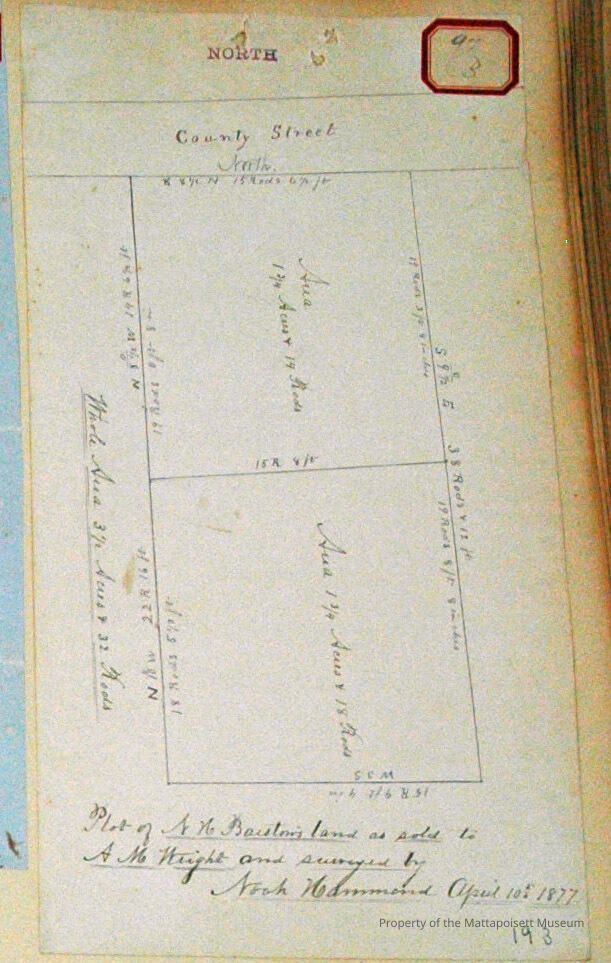 NORTH
9
3
County Street
North.
15 Rods 6½ ft
Area
1¾ Acres & 19 Rods
N 8½ W 19 R 6½ ft
19 Rods 8 ft 8 in
19 Rods 3 ft 4 inches
S 9½ E 38 Rods & 12 ft
15 R 4 ft
19 Rods 8 ft 8 inches
Whole Area 3½ Acres & 32 Rods
Area 1¾ Acres & 18 Rods
N 8 W 22 R 16 ft
18 Rods 5½ ft
W S S
15 R 9½ ft 4 in
Plot of N H Barstows land as sold to
A M Wright and surveyed by
Noah Hammond April 10th 1877
Property of the Mattapoisett Museum
193